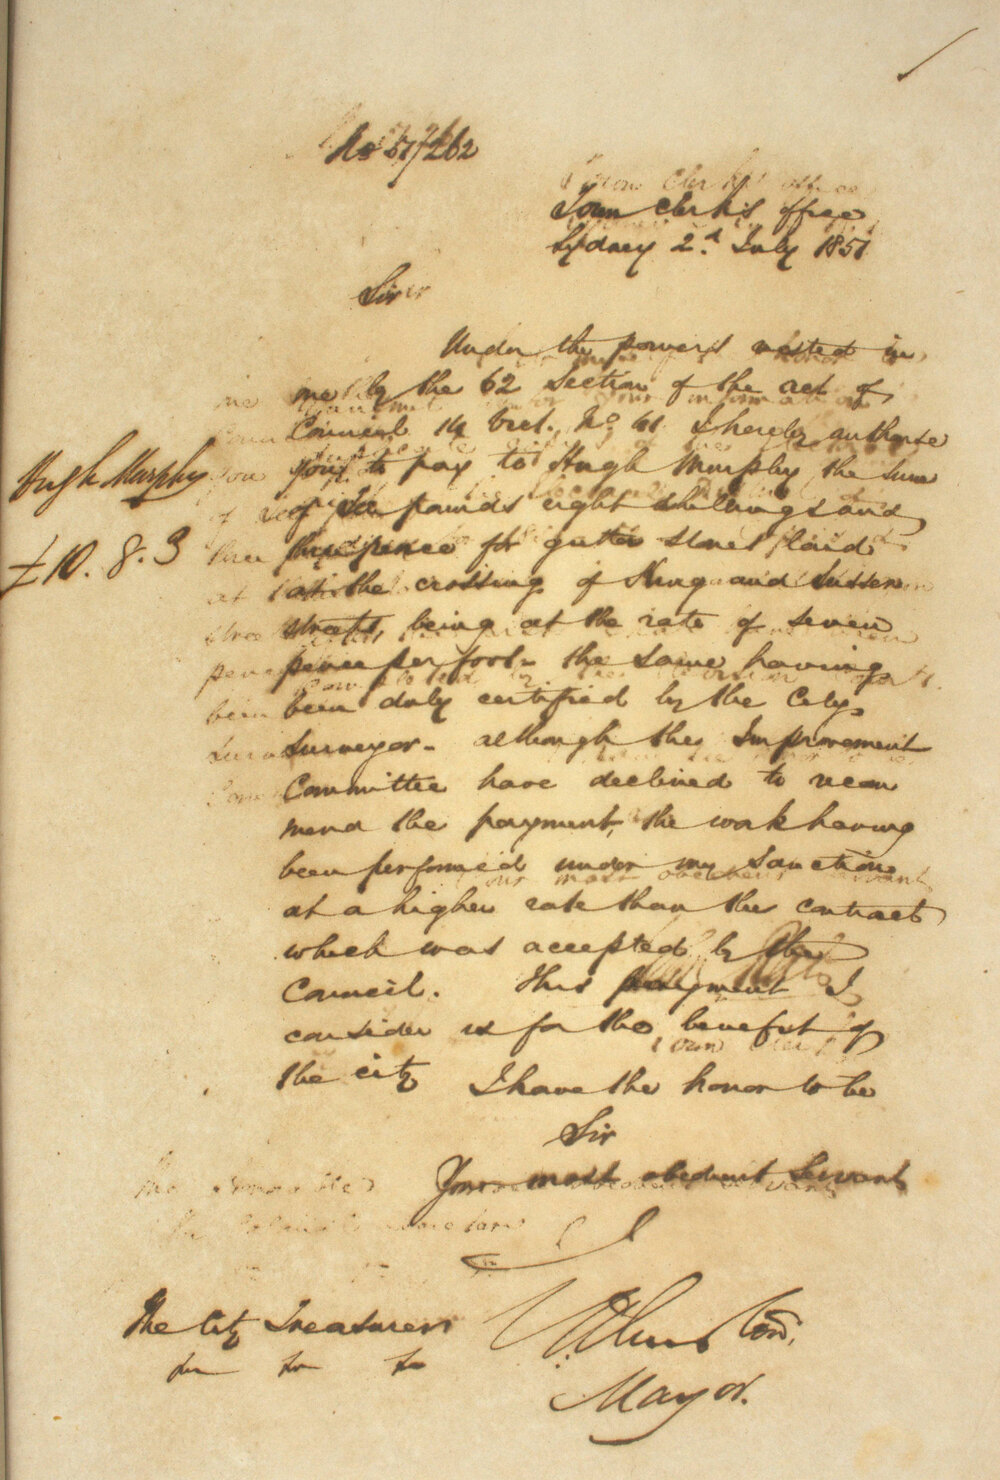 No 51/262
Town Clerk's Office
Sydney 2d July 1851
Sir
Under the powers vested in
me by the 62 Section of the act of
Council 14 Vict. No 41 I hereby authorise
you to pay to Hugh Murphy the Sum
Hugh Murphy
of Ten pounds eight shillings and
three pence for gutter stones laid
£10. 8. 3
at the crossing of King and Sussex
streets, being at the rate of seven
pence per foot - the same having
been duly certified by the City
Surveyor - although the Improvement
Committee have declined to recom
mend the payment, the work having
been performed under my Sanction
at a higher rate than the contract
which was accepted by the
Council. This payment I
consider is for the benefit of
the city I have the honor to be
Sir
Your most obedient Servant
The City Treasurer
Mayor.